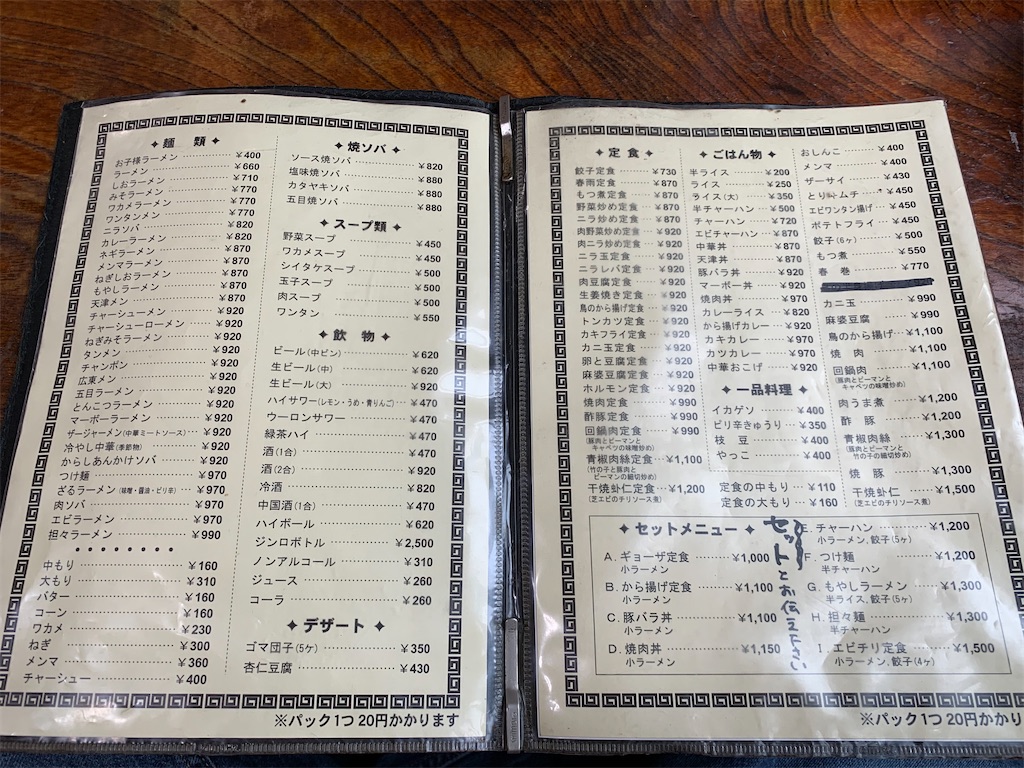 ✦ 麺 類 ✦
お子様ラーメン ¥400
ラーメン ¥660
しおラーメン ¥710
みそラーメン ¥770
ワカメラーメン ¥770
ワンタンメン ¥770
ニラソバ ¥820
カレーラーメン ¥820
ネギラーメン ¥870
メンマラーメン ¥870
ねぎしおラーメン ¥870
もやしラーメン ¥870
天津メン ¥870
チャーシューメン ¥920
チャーシューローメン ¥920
ねぎみそラーメン ¥920
タンメン ¥920
チャンポン ¥920
広東メン ¥920
五目ラーメン ¥920
とんこつラーメン ¥920
マーボーラーメン ¥920
ザージャーメン(中華ミートソース) ¥920
冷やし中華(季節物) ¥920
からしあんかけソバ ¥920
つけ麺 ¥970
ざるラーメン(味噌・醤油・ピリ辛) ¥970
肉ソバ ¥970
エビラーメン ¥970
担々ラーメン ¥990
中もり ¥160
大もり ¥310
バター ¥160
コーン ¥160
ワカメ ¥230
ねぎ ¥300
メンマ ¥360
チャーシュー ¥400
✦ 焼ソバ ✦
ソース焼ソバ ¥820
塩味焼ソバ ¥880
カタヤキソバ ¥880
五目焼ソバ ¥880
✦ スープ類 ✦
野菜スープ ¥450
ワカメスープ ¥450
シイタケスープ ¥500
玉子スープ ¥500
肉スープ ¥500
ワンタン ¥550
✦ 飲 物 ✦
ビール(中ビン) ¥620
生ビール(中) ¥620
生ビール(大) ¥920
ハイサワー(レモン・うめ・青りんご) ¥470
ウーロンサワー ¥470
緑茶ハイ ¥470
酒(1合) ¥470
酒(2合) ¥920
冷酒 ¥820
中国酒(1合) ¥470
ハイボール ¥620
ジンロボトル ¥2,500
ノンアルコール ¥310
ジュース ¥260
コーラ ¥260
✦ デザート ✦
ゴマ団子(5ケ) ¥350
杏仁豆腐 ¥430
※パック1つ 20円かかります
✦ 定 食 ✦
餃子定食 ¥730
春雨定食 ¥870
もつ煮定食 ¥870
野菜炒め定食 ¥870
ニラ炒め定食 ¥870
肉野菜炒め定食 ¥920
肉ニラ炒め定食 ¥920
ニラ玉定食 ¥920
ニラレバ定食 ¥920
肉豆腐定食 ¥920
生姜焼き定食 ¥920
鳥のから揚げ定食 ¥920
トンカツ定食 ¥920
カキフライ定食 ¥920
カニ玉定食 ¥920
卵と豆腐定食 ¥920
麻婆豆腐定食 ¥920
ホルモン定食 ¥920
焼肉定食 ¥990
酢豚定食 ¥990
回鍋肉定食 ¥990
(豚肉とピーマンと
キャベツの味噌炒め)
青椒肉絲定食 ¥1,100
(竹の子と豚肉と
ピーマンの細切炒め)
干焼蝦仁定食 ¥1,200
(芝エビのチリソース煮)
✦ ごはん物 ✦
半ライス ¥200
ライス ¥250
ライス(大) ¥350
半チャーハン ¥500
チャーハン ¥720
エビチャーハン ¥870
中華丼 ¥870
天津丼 ¥870
豚バラ丼 ¥920
マーボー丼 ¥920
焼肉丼 ¥970
カレーライス ¥820
から揚げカレー ¥920
カキカレー ¥970
カツカレー ¥970
中華おこげ ¥920
✦ 一品料理 ✦
イカゲソ ¥400
ピリ辛きゅうり ¥350
枝 豆 ¥400
やっこ ¥400
定食の中もり ¥110
定食の大もり ¥160
おしんこ ¥400
メンマ ¥400
ザーサイ ¥430
とりキムチ ¥450
エビワンタン揚げ ¥450
ポテトフライ ¥450
餃子(6ヶ) ¥450
もつ煮 ¥550
春 巻 ¥770
カニ玉 ¥990
麻婆豆腐 ¥990
鳥のから揚げ ¥1,100
焼 肉 ¥1,100
回鍋肉 ¥1,100
(豚肉とピーマンと
キャベツの味噌炒め)
肉うま煮 ¥1,200
酢 豚 ¥1,200
青椒肉絲 ¥1,300
(豚肉とピーマンと
竹の子の細切炒め)
焼 豚 ¥1,300
干焼蝦仁 ¥1,500
(芝エビのチリソース煮)
✦ セットメニュー ✦
A. ギョーザ定食 ¥1,000
小ラーメン
B. から揚げ定食 ¥1,100
小ラーメン
C. 豚バラ丼 ¥1,100
小ラーメン
D. 焼肉丼 ¥1,150
小ラーメン
セットとお伝え下さい
E. チャーハン ¥1,200
小ラーメン, 餃子(5ヶ)
F. つけ麺 ¥1,200
半チャーハン
G. もやしラーメン ¥1,300
半ライス, 餃子(5ヶ)
H. 担々麺 ¥1,300
半チャーハン
I. エビチリ定食 ¥1,500
小ラーメン, 餃子(4ヶ)
※パック1つ 20円かかり